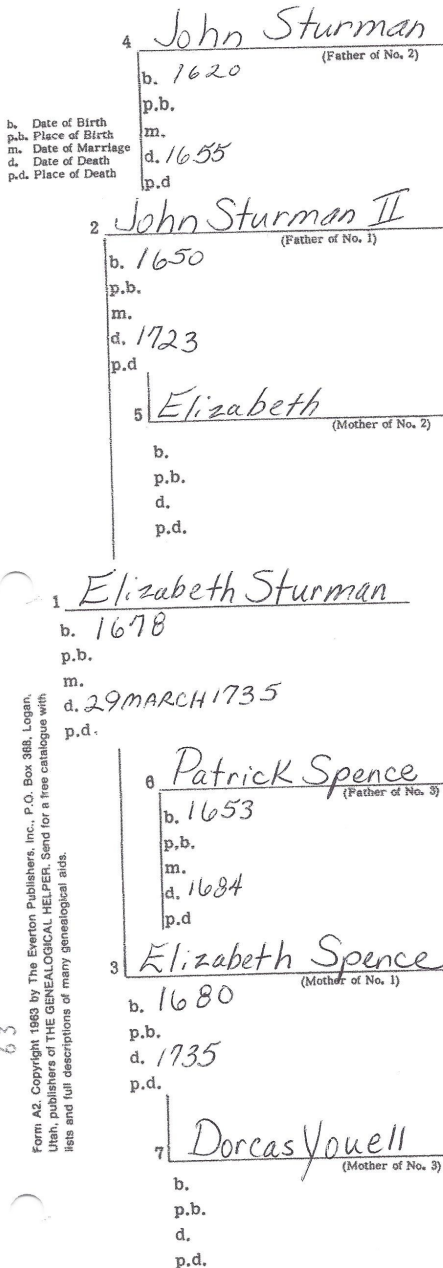 4 John Sturman
(Father of No. 2)
b. 1620
p.b.
m.
d. 1655
p.d
b. Date of Birth
p.b. Place of Birth
m. Date of Marriage
d. Date of Death
p.d. Place of Death
2 John Sturman II
(Father of No. 1)
b. 1650
p.b.
m.
d. 1723
p.d
5 Elizabeth
(Mother of No. 2)
b.
p.b.
d.
p.d.
1 Elizabeth Sturman
b. 1678
p.b.
m.
d. 29 MARCH 1735
p.d.
6 Patrick Spence
(Father of No. 3)
b. 1653
p.b.
m.
d. 1684
p.d
3 Elizabeth Spence
(Mother of No. 1)
b. 1680
p.b.
d. 1735
p.d.
7 Dorcas Youell
(Mother of No. 3)
b.
p.b.
d.
p.d.
63
Form A2. Copyright 1963 by The Everton Publishers, Inc., P.O. Box 368, Logan,
Utah, publishers of THE GENEALOGICAL HELPER. Send for a free catalogue with
lists and full descriptions of many genealogical aids.